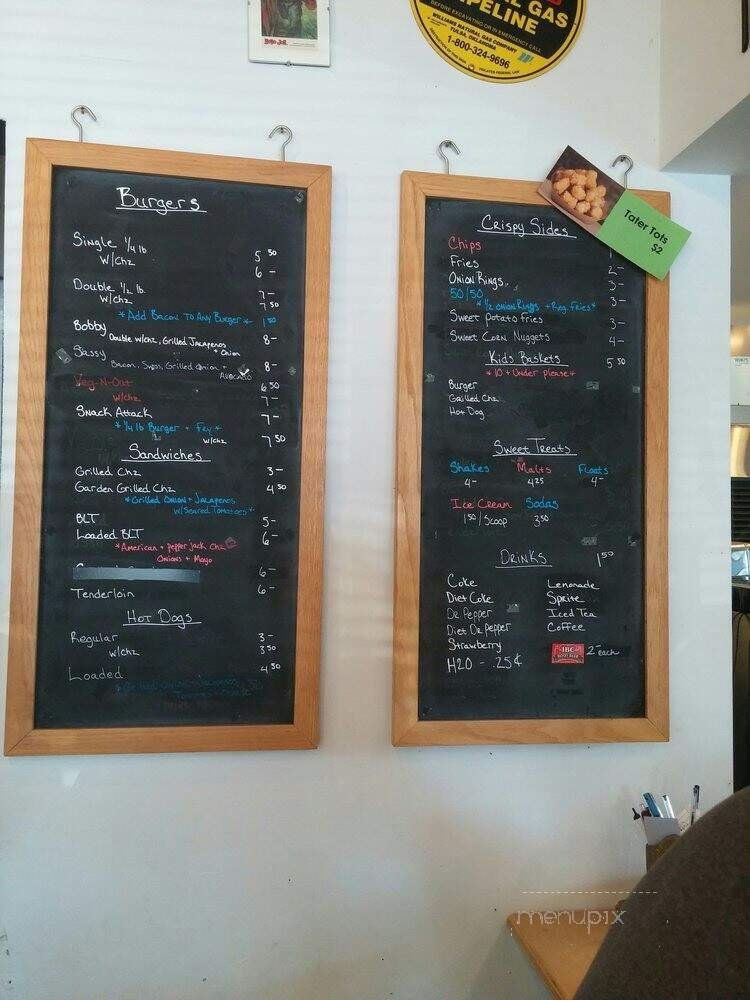 GAS
PIPELINE
BEFORE EXCAVATING OR IN EMERGENCY CALL
WILLIAMS NATURAL GAS COMPANY
TULSA, OKLAHOMA
1-800-324-9696
Burgers
Single 1/4 lb 5 50
w/chz 6 -
Double 1/2 lb. 7 -
w/chz 7 50
*Add Bacon To Any Burger* 1 50
Bobby 8 -
Double w/chz, Grilled Jalapenos
+ Onion
Sassy 8 -
Bacon, Swiss, Grilled Onion +
Avocado
Veg-N-Out 6 50
w/chz 7 -
Snack Attack 7 -
*1/4 lb Burger + Fry*
w/chz 7 50
Sandwiches
Grilled Chz 3 -
Garden Grilled Chz 4 50
*Grilled Onion + Jalapenos
w/Seared Tomatoes*
BLT 5 -
Loaded BLT 6 -
*American + pepper jack chz
Onions + Mayo
6 -
Tenderloin 6 -
Hot Dogs
Regular 3 -
w/chz 3 50
Loaded 4 50
Tater Tots
$2
Crispy Sides
Chips 1
Fries 2 -
Onion Rings 3 -
50/50 3 -
*1/2 Onion Rings + Reg. Fries*
Sweet Potato Fries 3 -
Sweet Corn Nuggets 4 -
Kids Baskets 5 50
*10 + Under please*
Burger
Grilled Chz
Hot Dog
Sweet Treats
Shakes Malts Floats
4 - 4 25 4 -
Ice Cream Sodas
1 50 / Scoop 3 50
Drinks 1 50
Coke Lemonade
Diet Coke Sprite
Dr. Pepper Iced Tea
Diet Dr. Pepper Coffee
Strawberry IBC 2 - each
H2O - .25¢
menupix